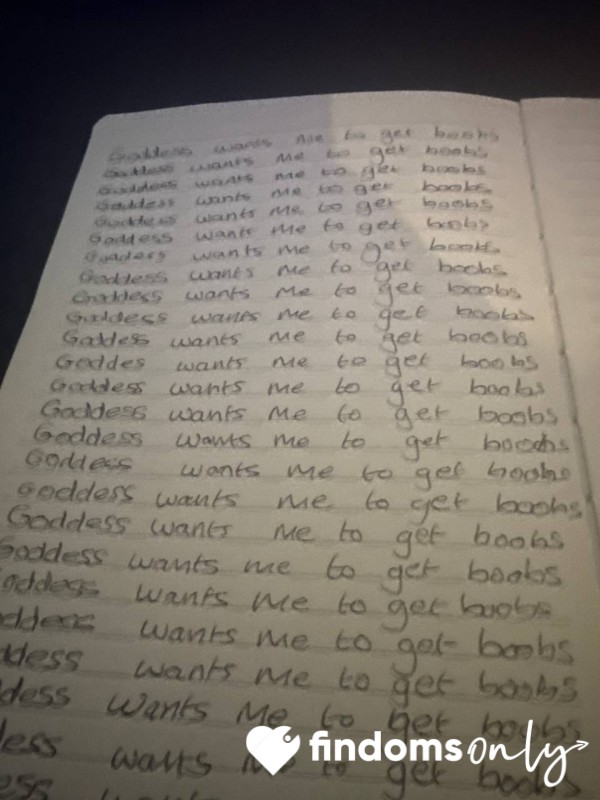 Goddess wants me to get boobs
Goddess wants me to get boobs
Goddess wants me to get boobs
Goddess wants me to get boobs
Goddess wants me to get boobs
Goddess wants me to get boobs
Goddess wants me to get boobs
Goddess wants me to get boobs
Goddess wants me to get boobs
Goddess wants me to get boobs
Goddess wants me to get boobs
Goddes wants me to get boobs
Goddess wants me to get boobs
Goddess wants me to get boobs
Goddess wants me to get boobs
Goddess wants me to get boobs
Goddess wants me to get boobs
Goddess wants me to get boobs
Goddess wants me to get boobs
oddess wants me to get boobs
ddess wants me to get boobs
ddess wants me to get boobs
dess wants me to get boobs
less wants me to get boobs
ess
findomsonly